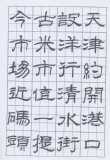 天津約開港口
設洋行清水街
古米市
今市場近碼頭